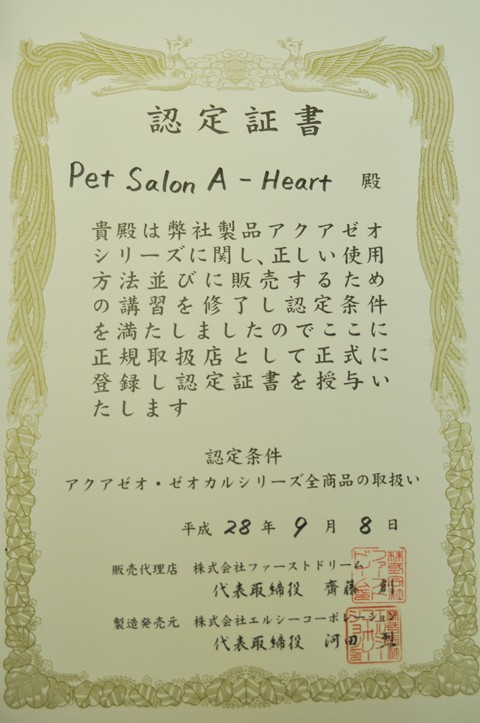 認定証書
Pet Salon A - Heart 殿
貴殿は弊社製品アクアゼオ
シリーズに関し、正しい使用
方法並びに販売するため
の講習を修了し認定条件
を満たしましたのでここに
正規取扱店として正式に
登録し認定証書を授与い
たします
認定条件
アクアゼオ・ゼオカルシリーズ全商品の取扱い
平成 28 年 9 月 8 日
販売代理店 株式会社ファーストドリーム
代表取締役 齊藤 創
製造発売元 株式会社エルシーコーポレーション
代表取締役 河田